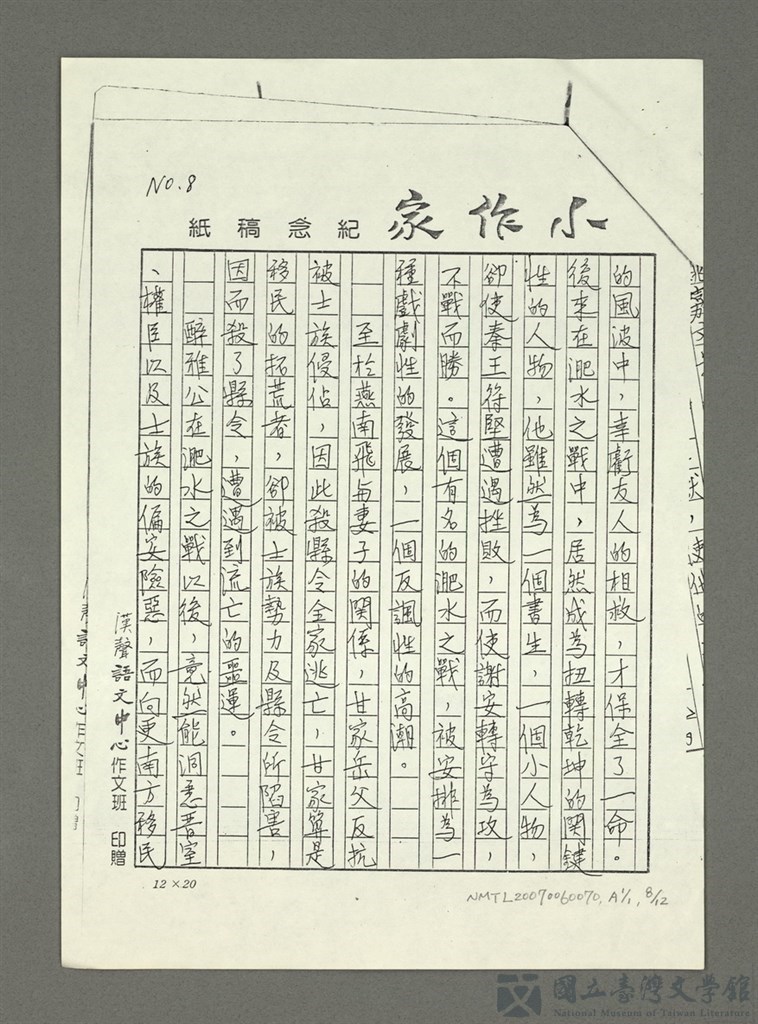 NO.8
小作家 紀念稿紙
的風波中，幸虧友人的相救，才保全了一命。
後來在淝水之戰中，居然成為扭轉乾坤的関鍵
性的人物，他雖然為一個書生，一個小人物，
卻使秦王符堅遭遇挫敗，而使謝安轉守為攻，
不戰而勝。這個有名的淝水之戰，被安排為一
種戲劇性的發展，一個反諷性的高潮。
至於燕南飛与妻子的関係，甘家岳父反抗
被士族侵佔，因此殺縣令全家逃亡，甘家算是
移民的拓荒者，卻被士族勢力及縣令所陷害，
因而殺了縣令，遭遇到流亡的噩運。
醉雅公在淝水之戰以後，竟然能洞悉晋室
、權臣以及士族的偏安險惡，而向更南方移民
漢聲語文中心作文班 印贈
語文中心作文班 印贈
12×20
NMTL20070060070, A1/1, 8/12
國立臺灣文學館
National Museum of Taiwan Literature